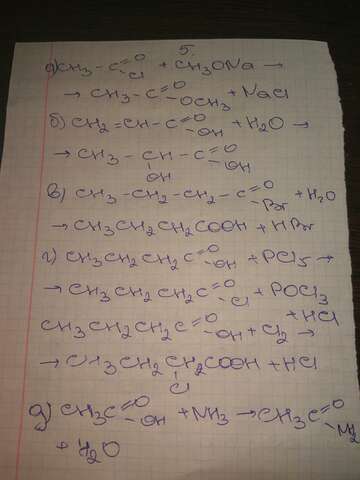 5.
а) CH3 - C =O - Cl + CH3ONa →
→ CH3 - C =O - OCH3 + NaCl
б) CH2 = CH - C =O - OH + H2O →
→ CH3 - CH - C =O - OH
OH
в) CH3 - CH2 - CH2 - C =O - Br + H2O
→ CH3CH2CH2COOH + HBr
г) CH3CH2CH2C =O - OH + PCl5 →
→ CH3CH2CH2C =O - Cl + POCl3
+ HCl
CH3CH2CH2C =O - OH + Cl2 →
→ CH3CH2CH2COOH + HCl
Cl
д) CH3C =O - OH + NH3 → CH3C =O - NH2
+ H2O